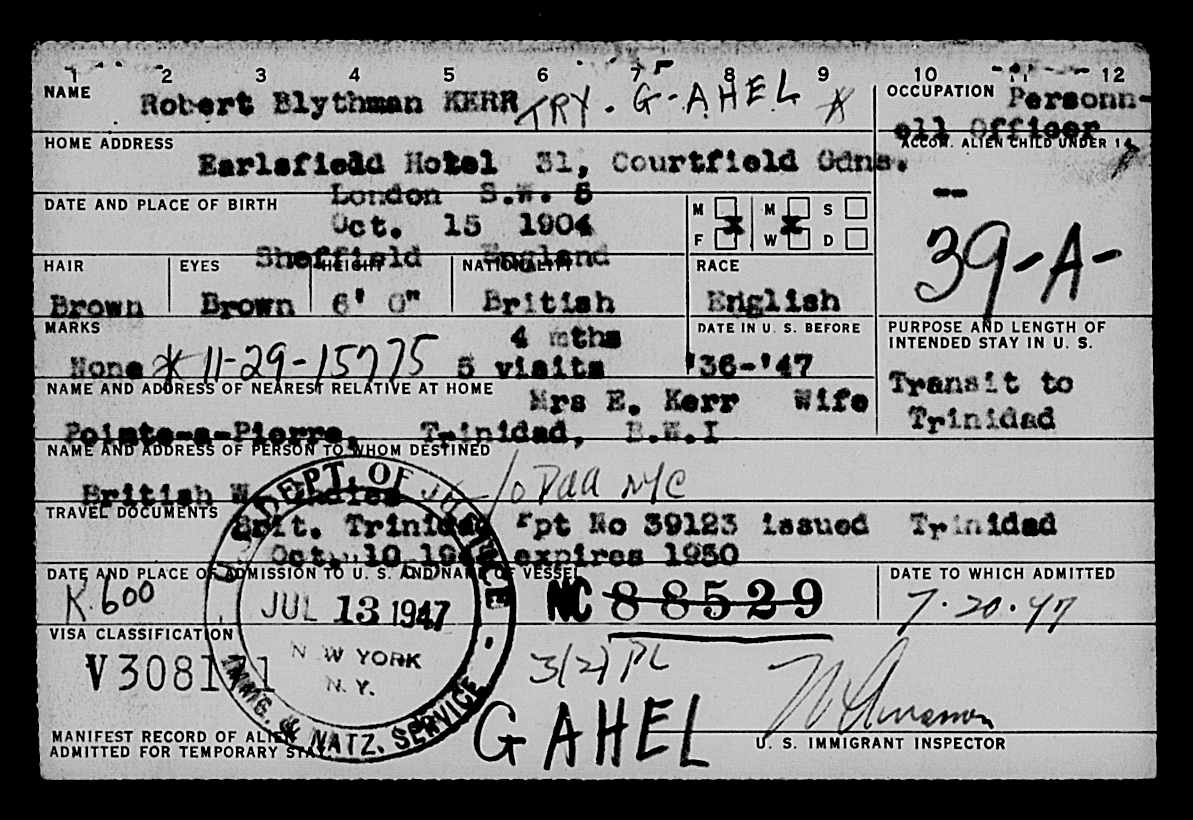 1 2 3 4 5 6 7 8 9 10 11 12
NAME Robert Blythman KERR TRY. G-AHEL
OCCUPATION Personn-
ell Officer
HOME ADDRESS
ACCOM. ALIEN CHILD UNDER 14
Earlsfiedd Hotel 31, Courtfield Gdns.
London S.W. 5
--
DATE AND PLACE OF BIRTH
Oct. 15 1904
M M S
F W D
X X
Sheffield England
39-A-
HAIR EYES HEIGHT NATIONALITY RACE
Brown Brown 6' 0" British English
MARKS DATE IN U. S. BEFORE
PURPOSE AND LENGTH OF
INTENDED STAY IN U. S.
4 mths
None * 11-29-15775 5 visits '36-'47
NAME AND ADDRESS OF NEAREST RELATIVE AT HOME
Transit to
Trinidad
Mrs E. Kerr Wife
Pointe-a-Pierre, Trinidad, B.W.I
NAME AND ADDRESS OF PERSON TO WHOM DESTINED
British W. Indies c/o Paa NYC
TRAVEL DOCUMENTS
Brit. Trinidad Ppt No 39123 issued Trinidad
Oct. 10 expires 1950
DATE AND PLACE OF ADMISSION TO U. S. AND NAME OF VESSEL
DATE TO WHICH ADMITTED
K.600
NC 88529
7.20.47
U.S. DEPT. OF JUSTICE
JUL 13 1947
NEW YORK
N. Y.
IMMG. & NATZ. SERVICE
VISA CLASSIFICATION
V308171
3(2) PL
G AHEL
MANIFEST RECORD OF ALIEN
ADMITTED FOR TEMPORARY STAY
U. S. IMMIGRANT INSPECTOR